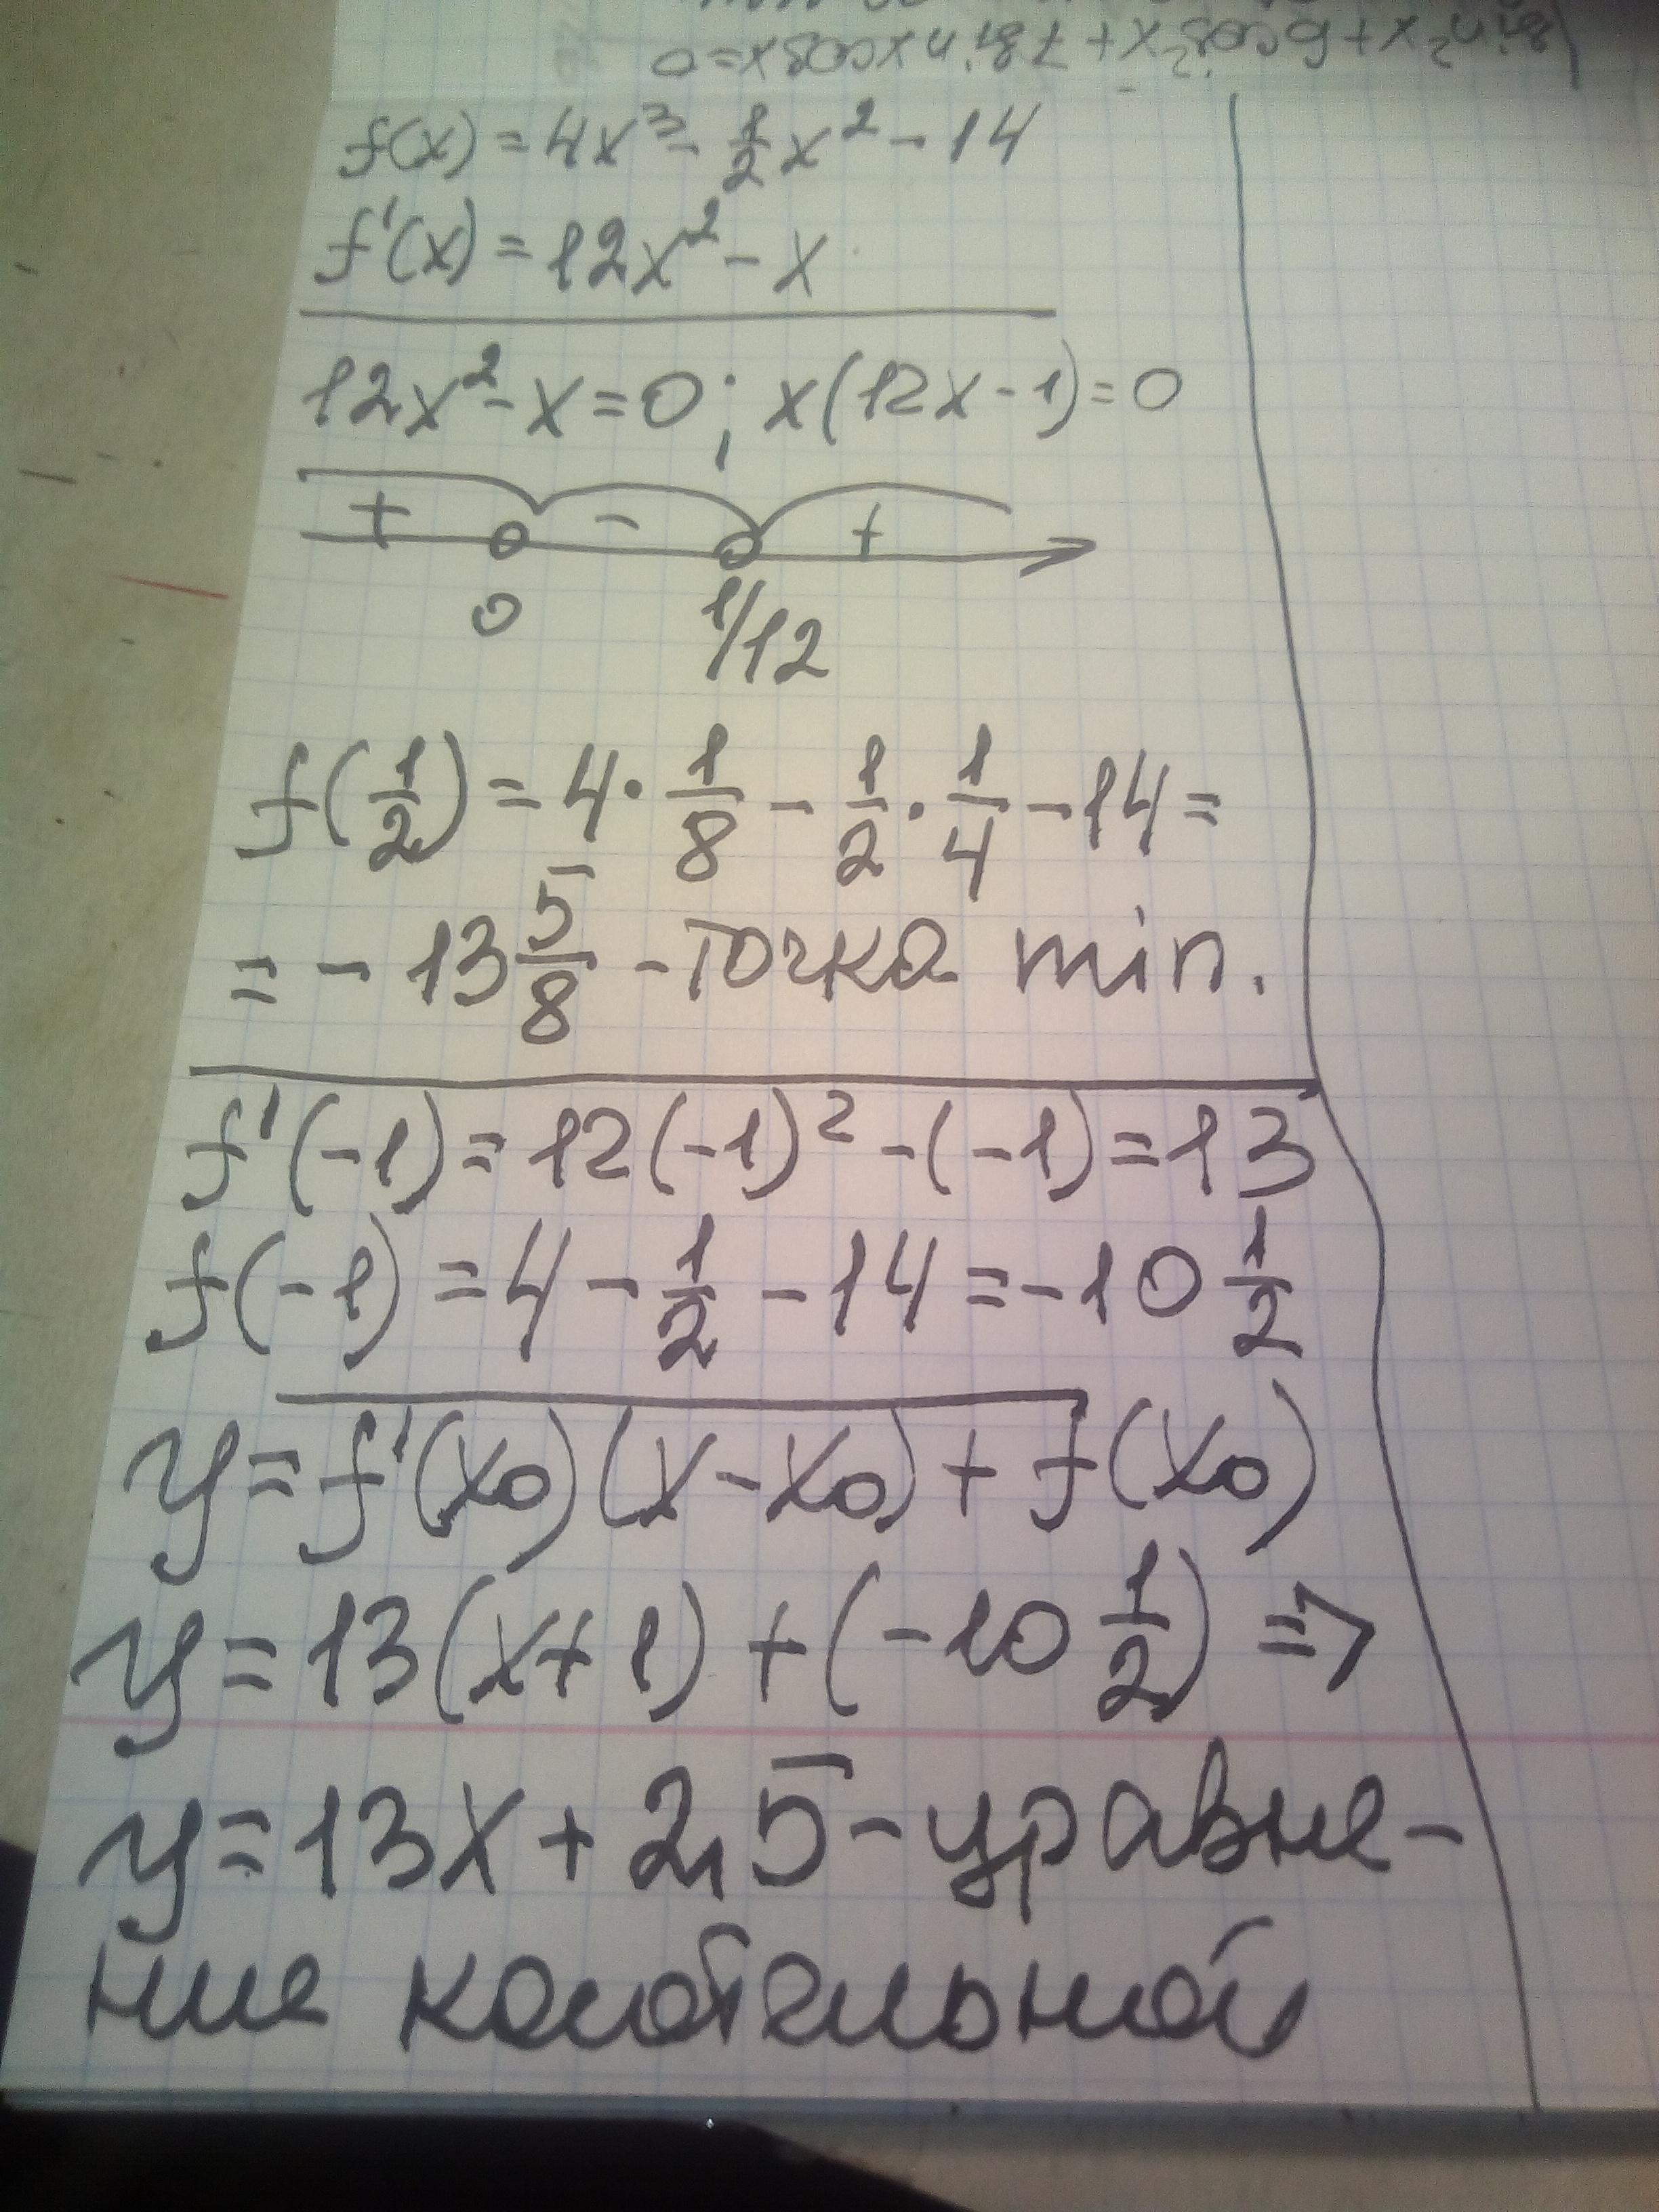 sin²x+6cos²x+7sinxcosx=0
f(x)=4x³-1/2x²-14
f'(x)=12x²-x
12x²-x=0; x(12x-1)=0
+ - +
0 1/12
f(1/2)=4·1/8-1/2·1/4-14=
=-13 5/8-точка min.
f'(-1)=12(-1)²-(-1)=13
f(-1)=4-1/2-14=-10 1/2
y=f'(x₀)(x-x₀)+f(x₀)
y=13(x+1)+(-10 1/2)=>
y=13x+2,5-уравне-
ние касательной